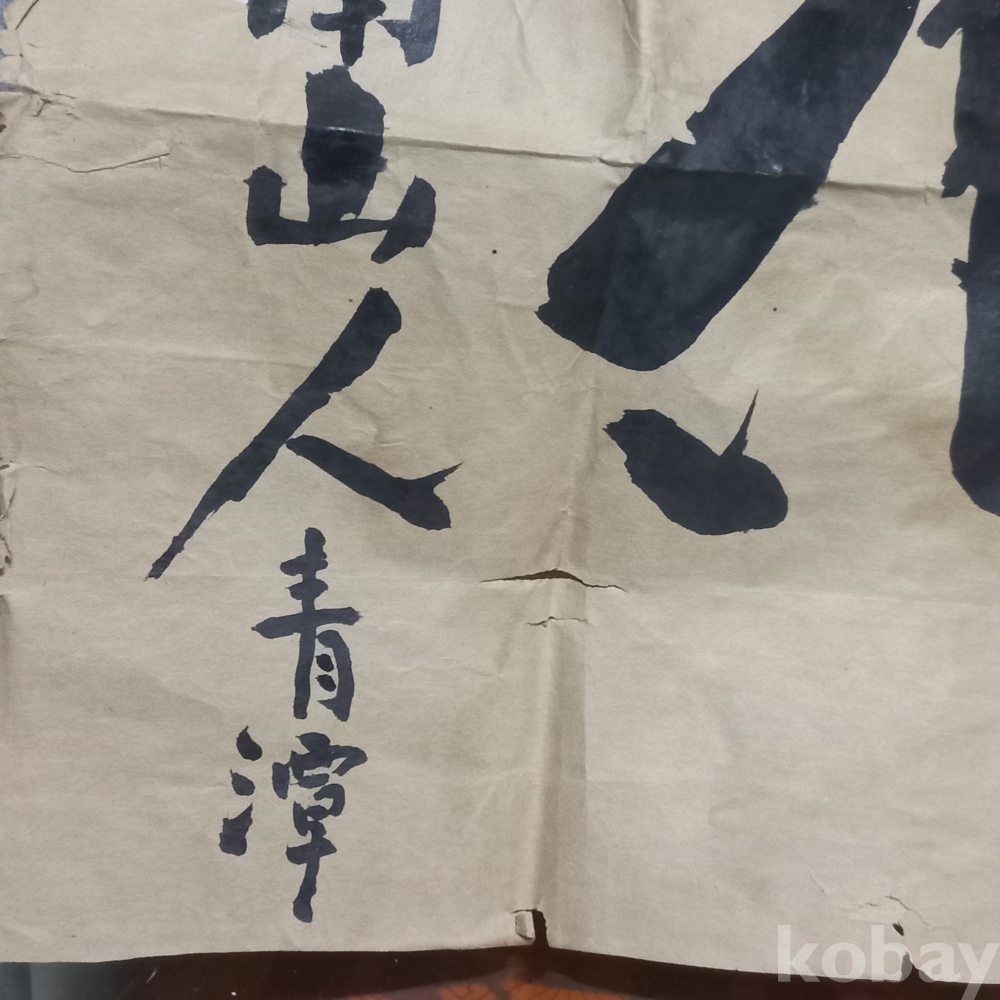 山人青潭
kobay